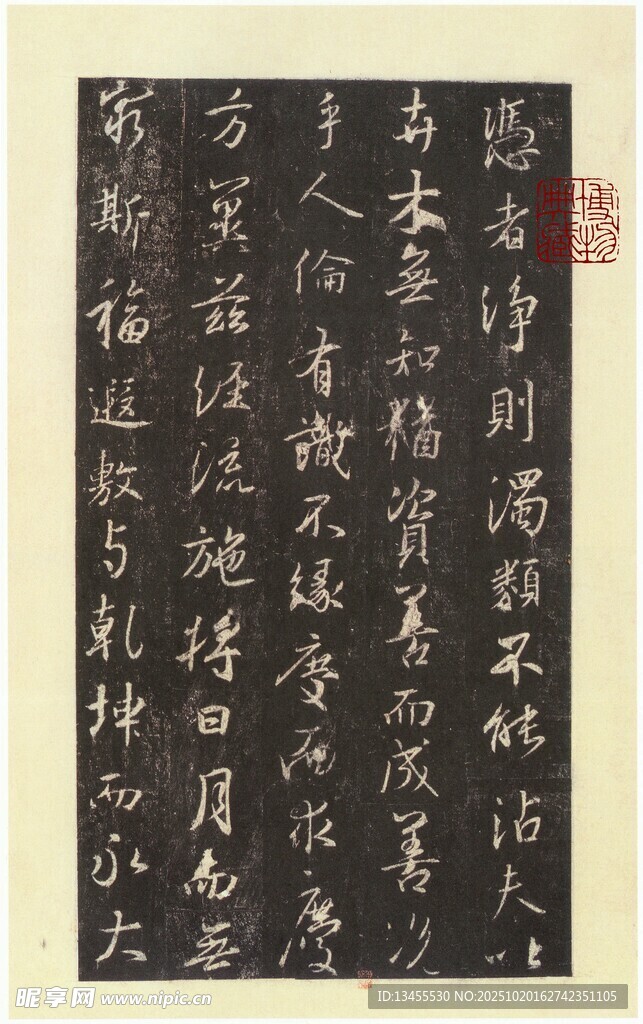 憑者淨則濁類不能沾夫以
卉木無知猶資善而成善況
乎人倫有識不緣慶而求慶
方冀茲經流施將日月而無
窮斯福遐敷与乾坤而永大
博物
典藏
昵享网 www.nipic.cn
ID:13455530 NO:20251020162742351105